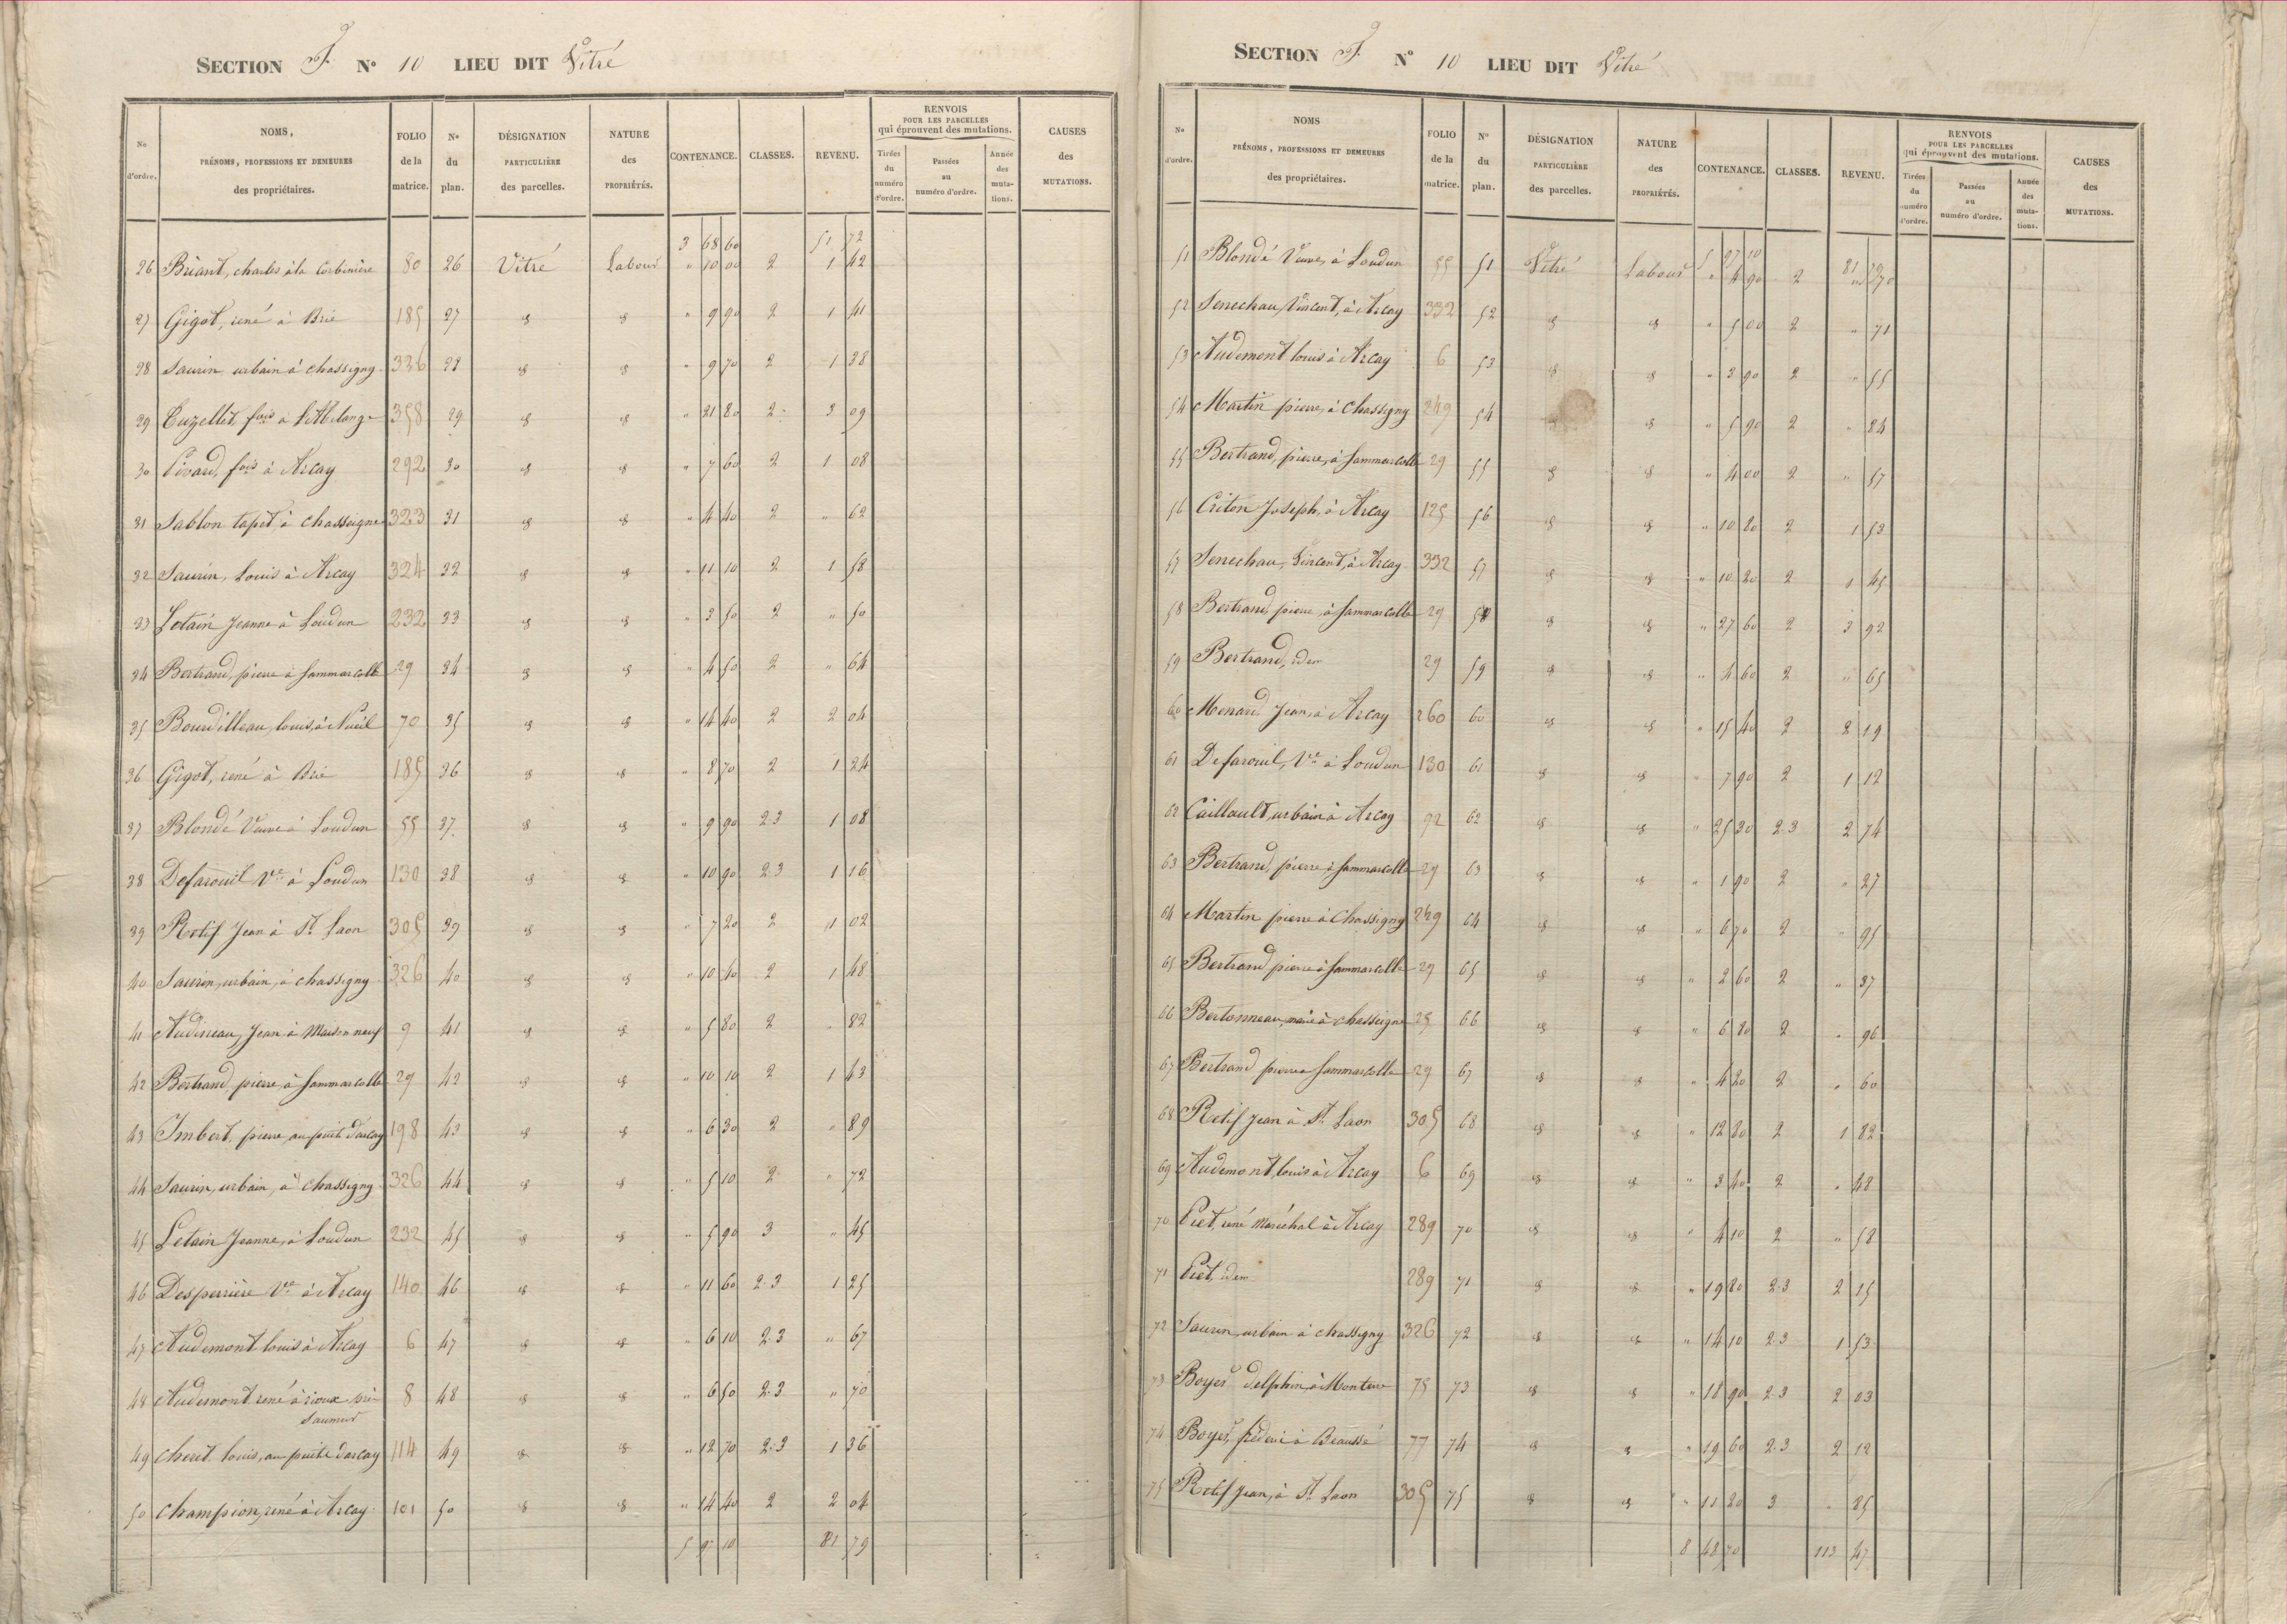 SECTION F. N° 10 LIEU DIT Vitré
N° d'ordre. NOMS, PRÉNOMS, PROFESSIONS ET DEMEURES des propriétaires. FOLIO de la matrice. N° du plan. DÉSIGNATION PARTICULIÈRE des parcelles. NATURE des PROPRIÉTÉS. CONTENANCE. CLASSES. REVENU. RENVOIS POUR LES PARCELLES qui éprouvent des mutations. Tirées du numéro d'ordre. Passées au numéro d'ordre. Année des mutations. CAUSES des MUTATIONS.
3 68 60 51 72
26 Briant, charles à la Corbinière 80 26 Vitré Labour " 10 00 2 1 42
27 Gigot, rené à Brie 185 27 " " " 9 90 2 1 41
28 Saurin urbain à chassigny 326 28 " " " 9 70 2 1 38
29 fois à 358 29 " " " 21 80 2 3 09
30 Pivard, fois à Arcay 292 30 " " " 7 60 2 1 08
31 Sablon tapet, à chasseigne 323 31 " " " 4 40 2 " 62
32 Saurin, Louis à Arcay 324 32 " " " 11 10 2 1 58
33 Letain Jeanne à Loudun 232 33 " " " 3 50 2 " 50
34 Bertrand, pierre à Sammarcolle 29 34 " " " 4 50 2 " 64
35 Bourdilleau, louis, à Nueil 70 35 " " " 14 40 2 2 04
36 Gigot, rené à Brie 185 36 " " " 8 70 2 1 24
37 Blondé Veuve à Loudun 55 37 " " " 9 90 2.3 1 08
38 Defarouil Ve à Loudun 130 38 " " " 10 90 2.3 1 16
39 Rotif Jean à St Laon 305 39 " " " 7 20 2 1 02
40 Saurin, urbain, à chassigny 326 40 " " " 10 40 2 1 48
41 Audineau, Jean à Maison neuf 9 41 " " " 5 80 2 " 82
42 Bertrand, pierre, à Sammarcolle 29 42 " " " 10 10 2 1 43
43 Imbert, pierre, au puits d'arcay 198 43 " " " 6 30 2 " 89
44 Saurin, urbain, à chassigny 326 44 " " " 5 10 2 " 72
45 Letain Jeanne, à Loudun 232 45 " " " 5 90 3 " 45
46 Desperrière Ve à Arcay 140 46 " " " 11 60 2.3 1 25
47 Audemont louis à Arcay 6 47 " " " 6 10 2.3 " 67
48 Audemont rené à rioux près 8 48 " " " 6 50 2.3 " 70
Saumur
49 cheret louis, au puits d'arcay 114 49 " " " 12 70 2.3 1 36
50 champion, rené à Arcay 101 50 " " " 14 40 2 2 04
5 97 10 81 79
SECTION F. N° 10 LIEU DIT Vitré
N° d'ordre. NOMS PRÉNOMS, PROFESSIONS ET DEMEURES des propriétaires. FOLIO de la matrice. N° du plan. DÉSIGNATION PARTICULIÈRE des parcelles. NATURE des PROPRIÉTÉS. CONTENANCE. CLASSES. REVENU. RENVOIS POUR LES PARCELLES qui éprouvent des mutations. Tirées du numéro d'ordre. Passées au numéro d'ordre. Année des mutations. CAUSES des MUTATIONS.
5 97 10 81 79
51 Blondé Veuve, à Loudun 55 51 Vitré Labour " 4 90 2 " 70
52 Senechau, Vincent, à Arcay 332 52 " " " 5 00 2 " 71
53 Audemont louis à Arcay 6 53 " " " 3 90 2 " 55
54 Martin pierre, à chassigny 249 54 " " " 5 90 2 " 84
55 Bertrand, pierre, à Sammarcolle 29 55 " " " 4 00 2 " 57
56 Criton Joseph, à Arcay 125 56 " " " 10 80 2 1 53
57 Senechau, Vincent, à Arcay 332 57 " " " 10 20 2 1 45
58 Bertrand, pierre, à Sammarcolle 29 58 " " " 27 60 2 3 92
59 Bertrand, idem 29 59 " " " 4 60 2 " 65
60 Menard Jean, à Arcay 260 60 " " " 15 40 2 2 19
61 Defarouil, Ve à Loudun 130 61 " " " 7 90 2 1 12
62 Caillault, urbain à Arcay 92 62 " " " 25 30 2.3 2 74
63 Bertrand, pierre à Sammarcolle 29 63 " " " 1 90 2 " 27
64 Martin pierre à Chassigny 249 64 " " " 6 70 2 " 95
65 Bertrand pierre à Sammarcolle 29 65 " " " 2 60 2 " 37
66 Bertonneau, marie à chasseigne 25 66 " " " 6 80 2 " 96
67 Bertrand pierre à Sammarcolle 29 67 " " " 4 20 2 " 60
68 Rotif Jean à St Laon 305 68 " " " 12 80 2 1 82
69 Audemont, louis à Arcay 6 69 " " " 3 40 2 " 48
70 Piet, rené Maréchal à Arcay 289 70 " " " 4 10 2 " 58
71 Piet, idem 289 71 " " " 19 80 2.3 2 15
72 Saurin, urbain à chassigny 326 72 " " " 14 10 2.3 1 53
73 Boyer delphin, à 75 73 " " " 18 90 2.3 2 03
74 Boyer, fréderic à Beaussé 77 74 " " " 19 60 2.3 2 12
75 Rotif Jean, à St Laon 305 75 " " " 11 20 3 " 85
8 48 70 113 47